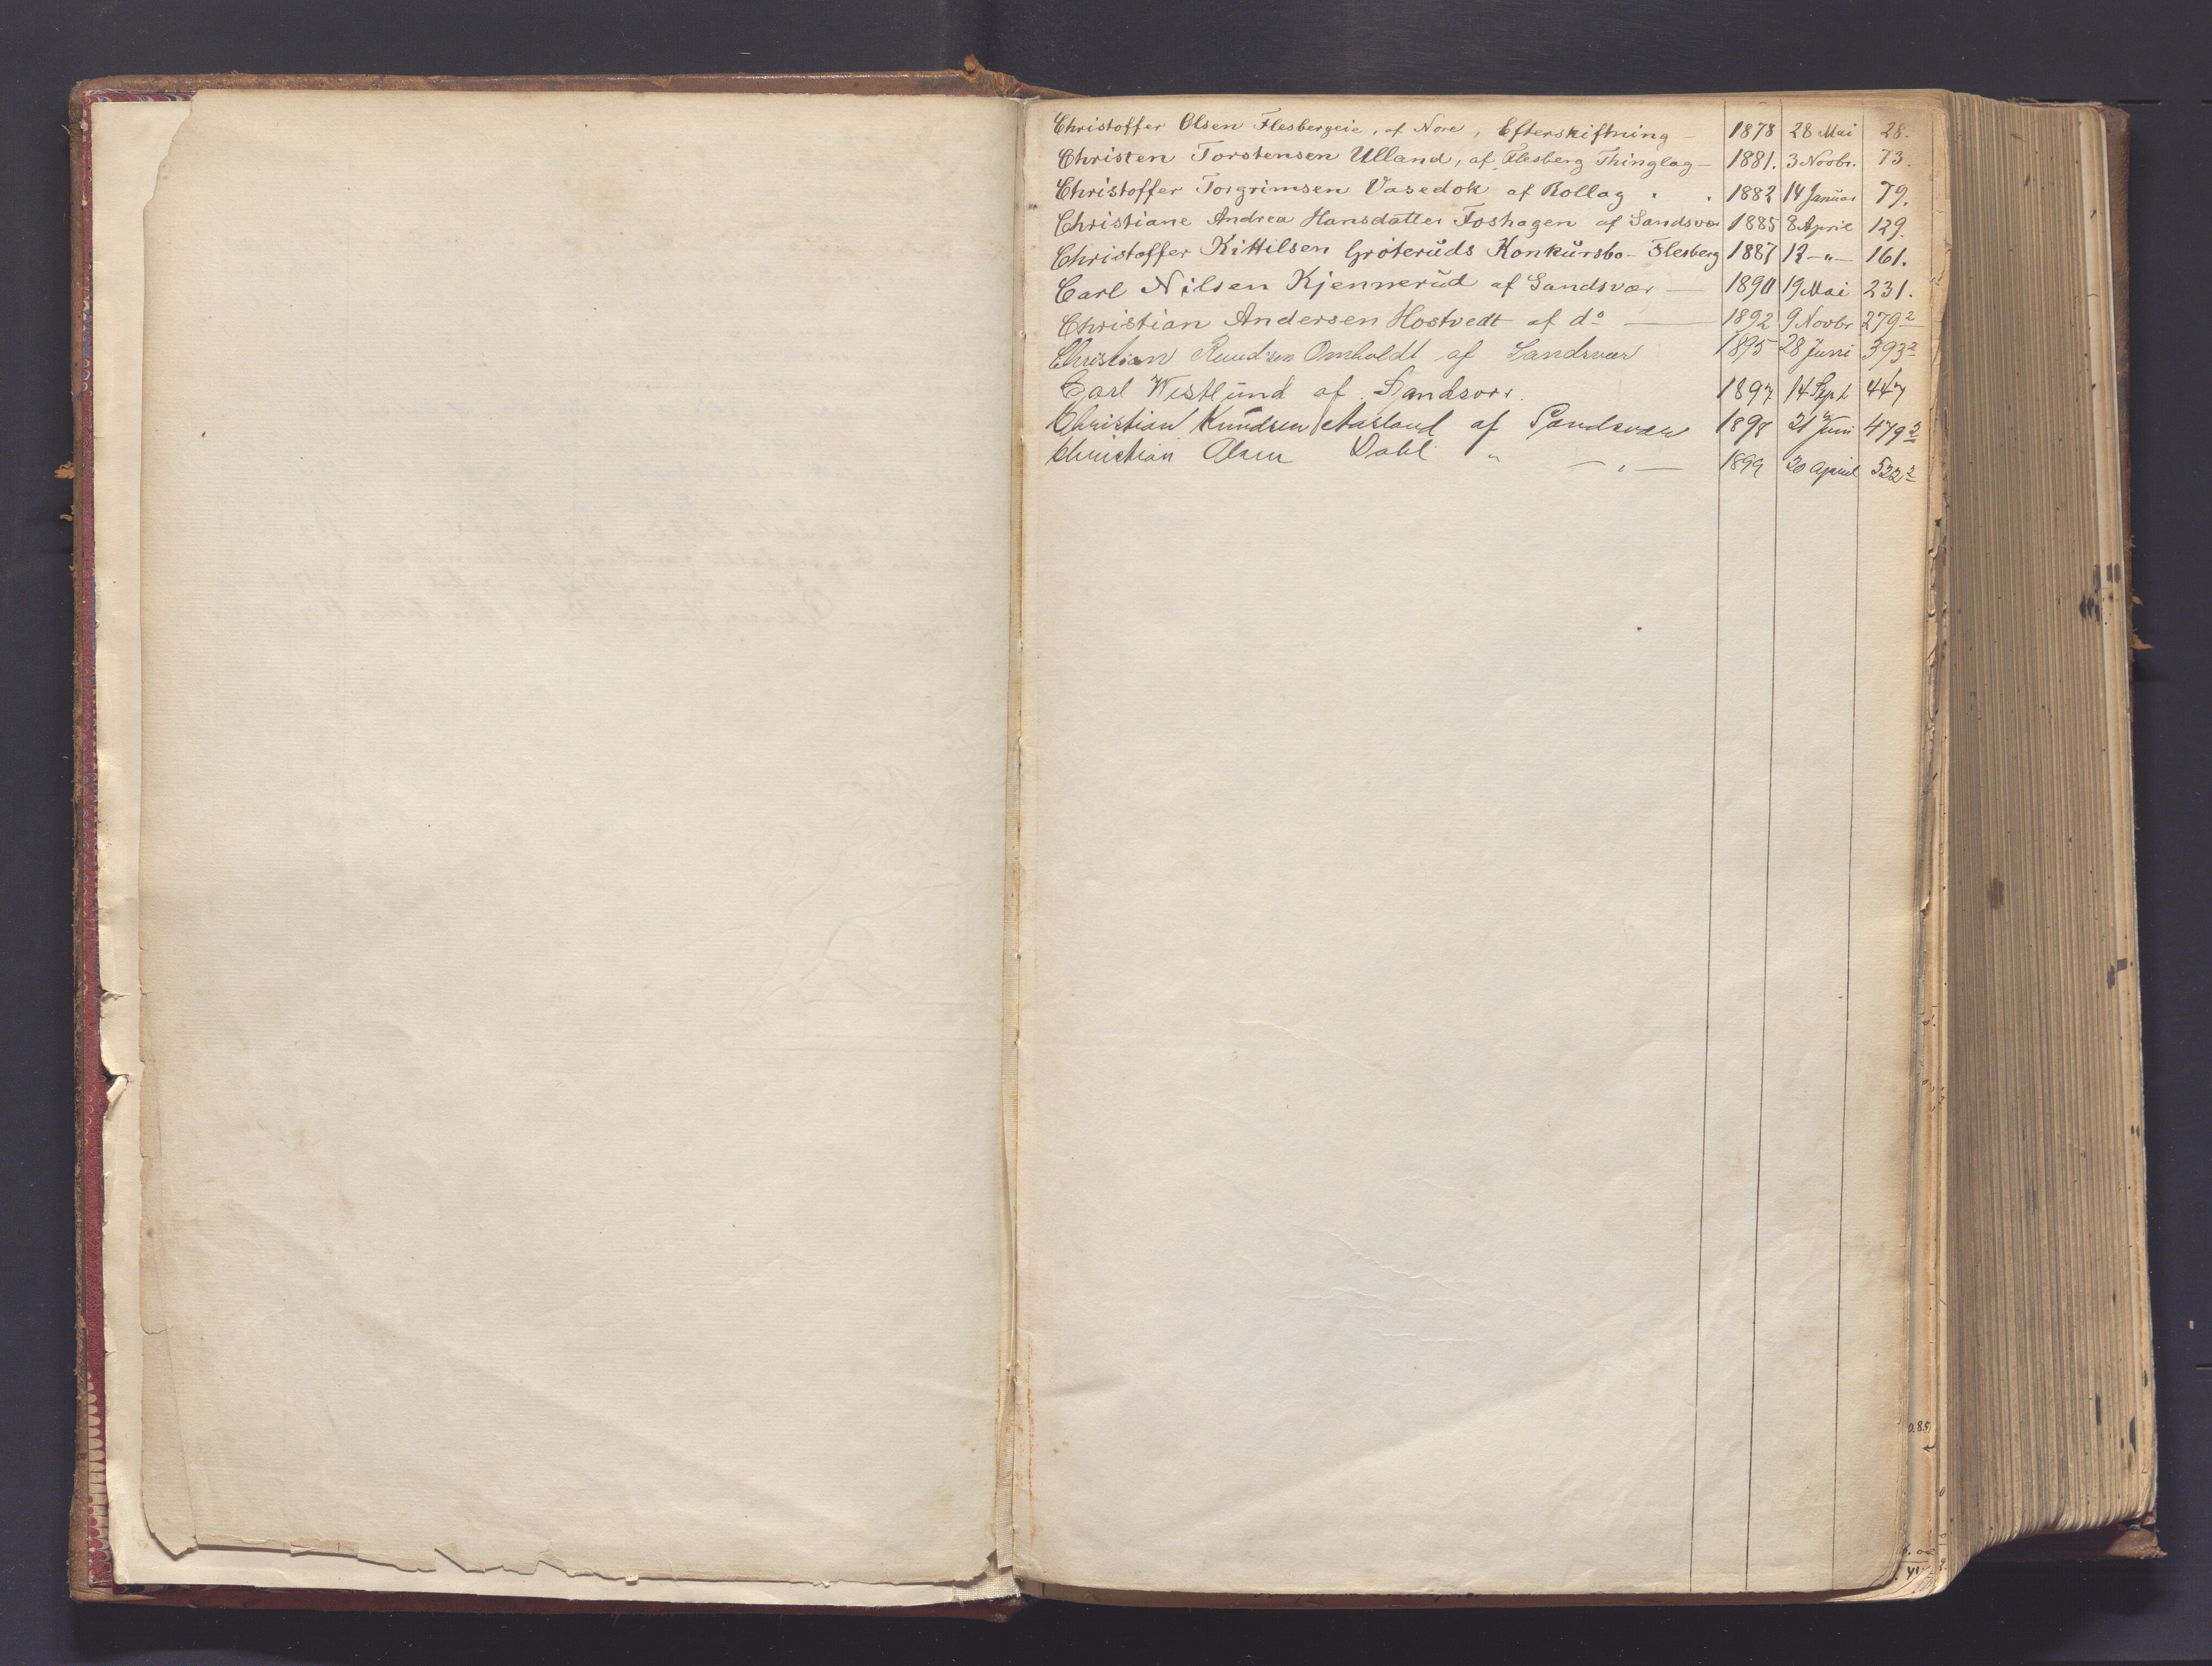 Christoffer Olsen Flesbergeie, af Nore, Efterskiftning – 1878 28 Mai 28.
Christen Torstensen Ulland, af Flesberg Thinglag – 1881. 3 Novbr. 73.
Christoffer Torgrimsen Vasedok af Rollag . . 1882 14 Januar 79.
Christiane Andrea Hansdatter Foshagen af Sandsvær 1885 8 April 129.
Christoffer Kittilsen Gröterŭds Konkŭrsbo – Flesberg 1887 12 –„– 161.
Carl Nilsen Kjennerŭd af Sandsvær — 1890 19 Mai 231.
Christian Andersen Hostvedt af do — 1892 9 Novbr 279 2
Christian Knudsen Omholdt af Sandsvær 1895 28 Juni 393 2
Carl Westlŭnd af Sandsvær. 1897 14 Sept 447
Christian Knudsen Aasland af Sandsvær 1898 21 Juni 479 2
Christian Olsen Dahl „ –„– 1899 20 april 522 2
0.85